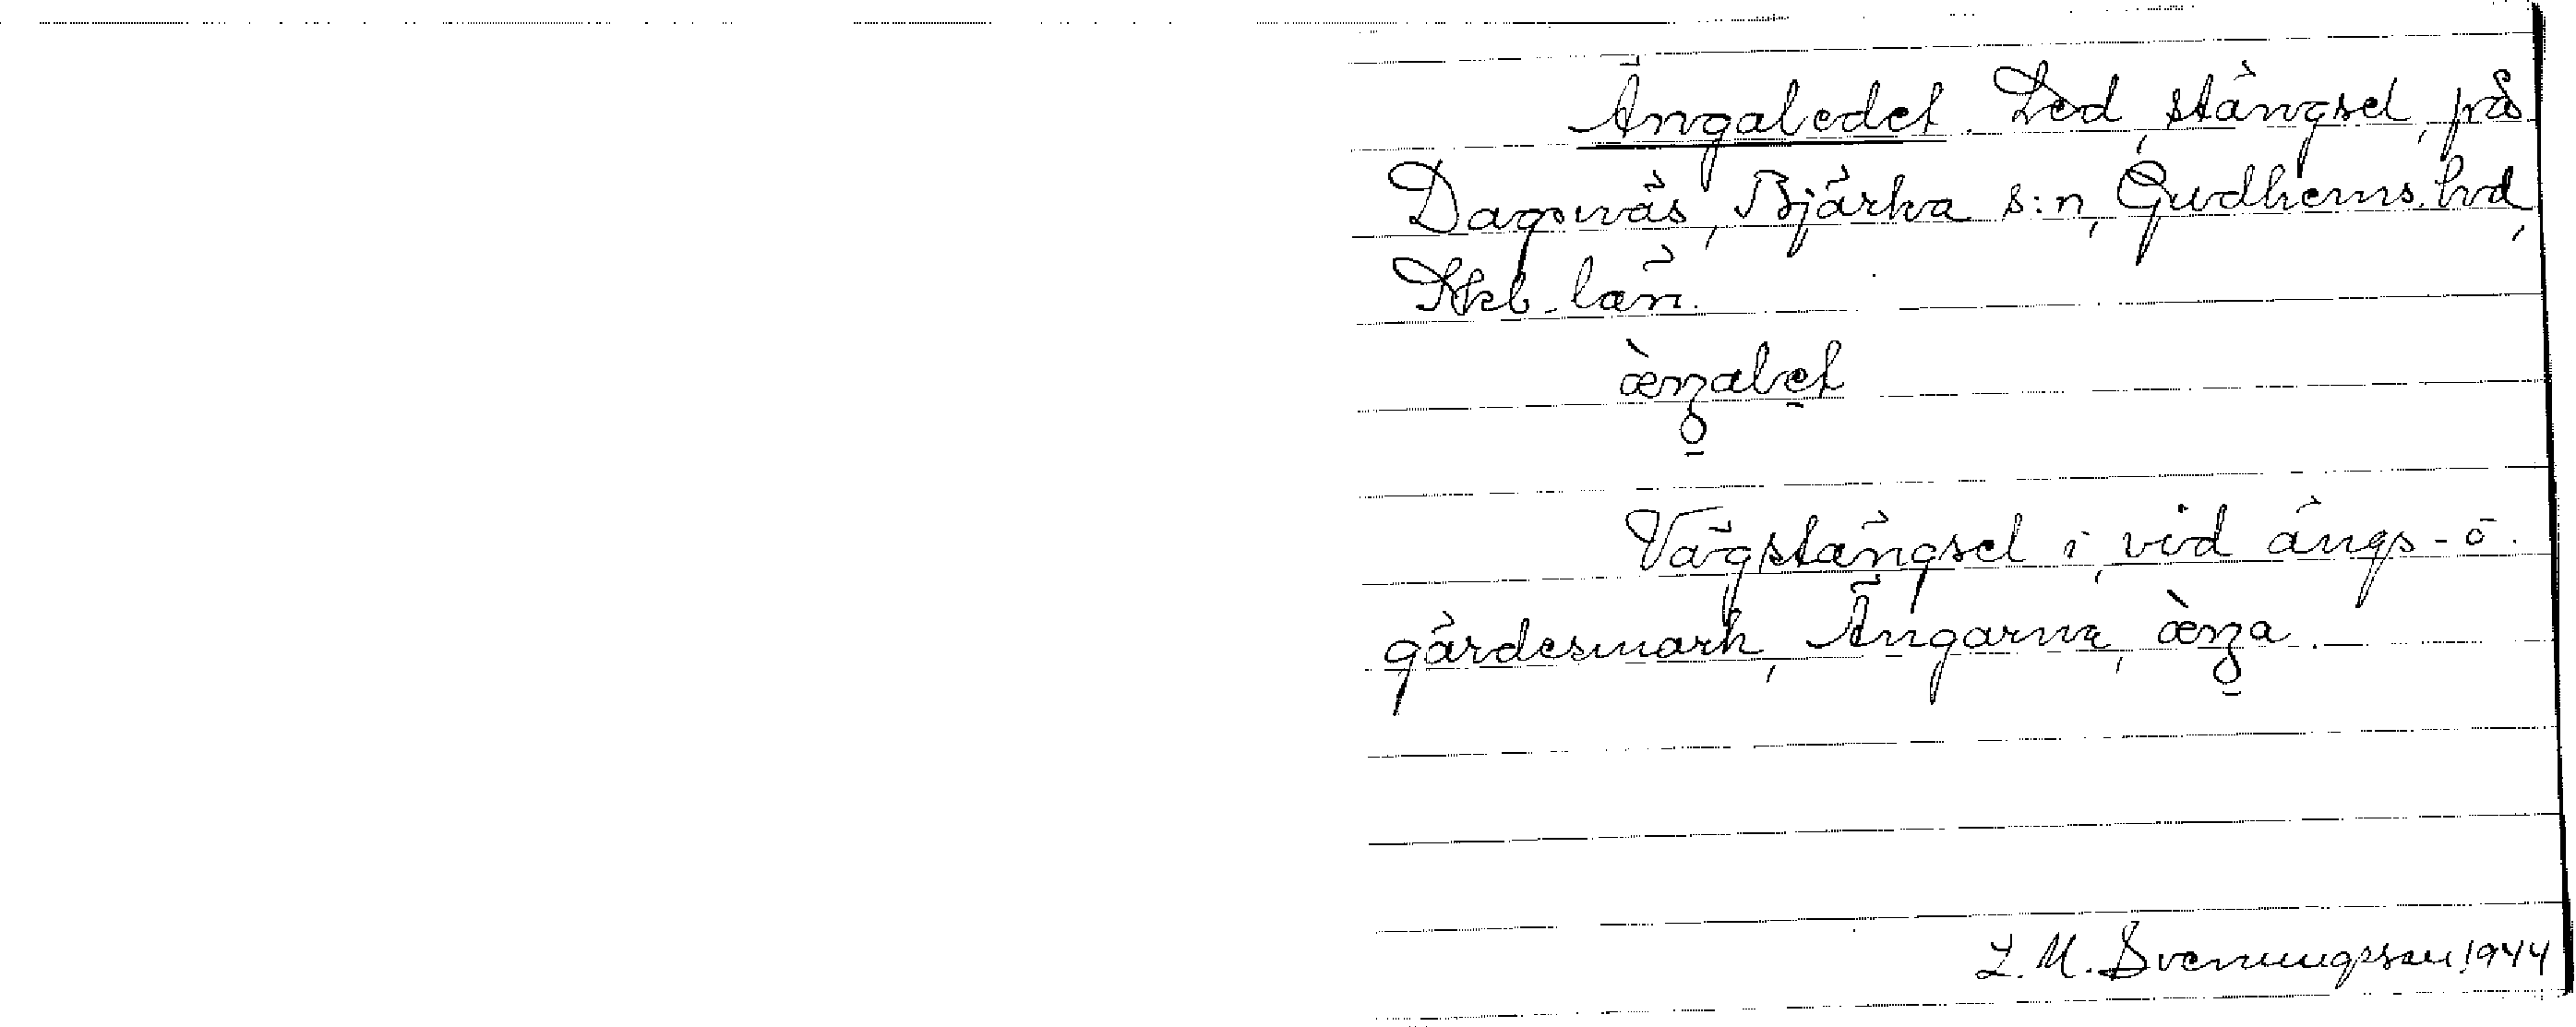 Ängaledet. Led, stängsel, på
Dagsnäs, Bjärka s:n, Gudhems hd,
Skb. län.
Vägstängsel i, vid ängs- o.
gärdesmark, Ängarna,
L. M. Svenungsson 1944